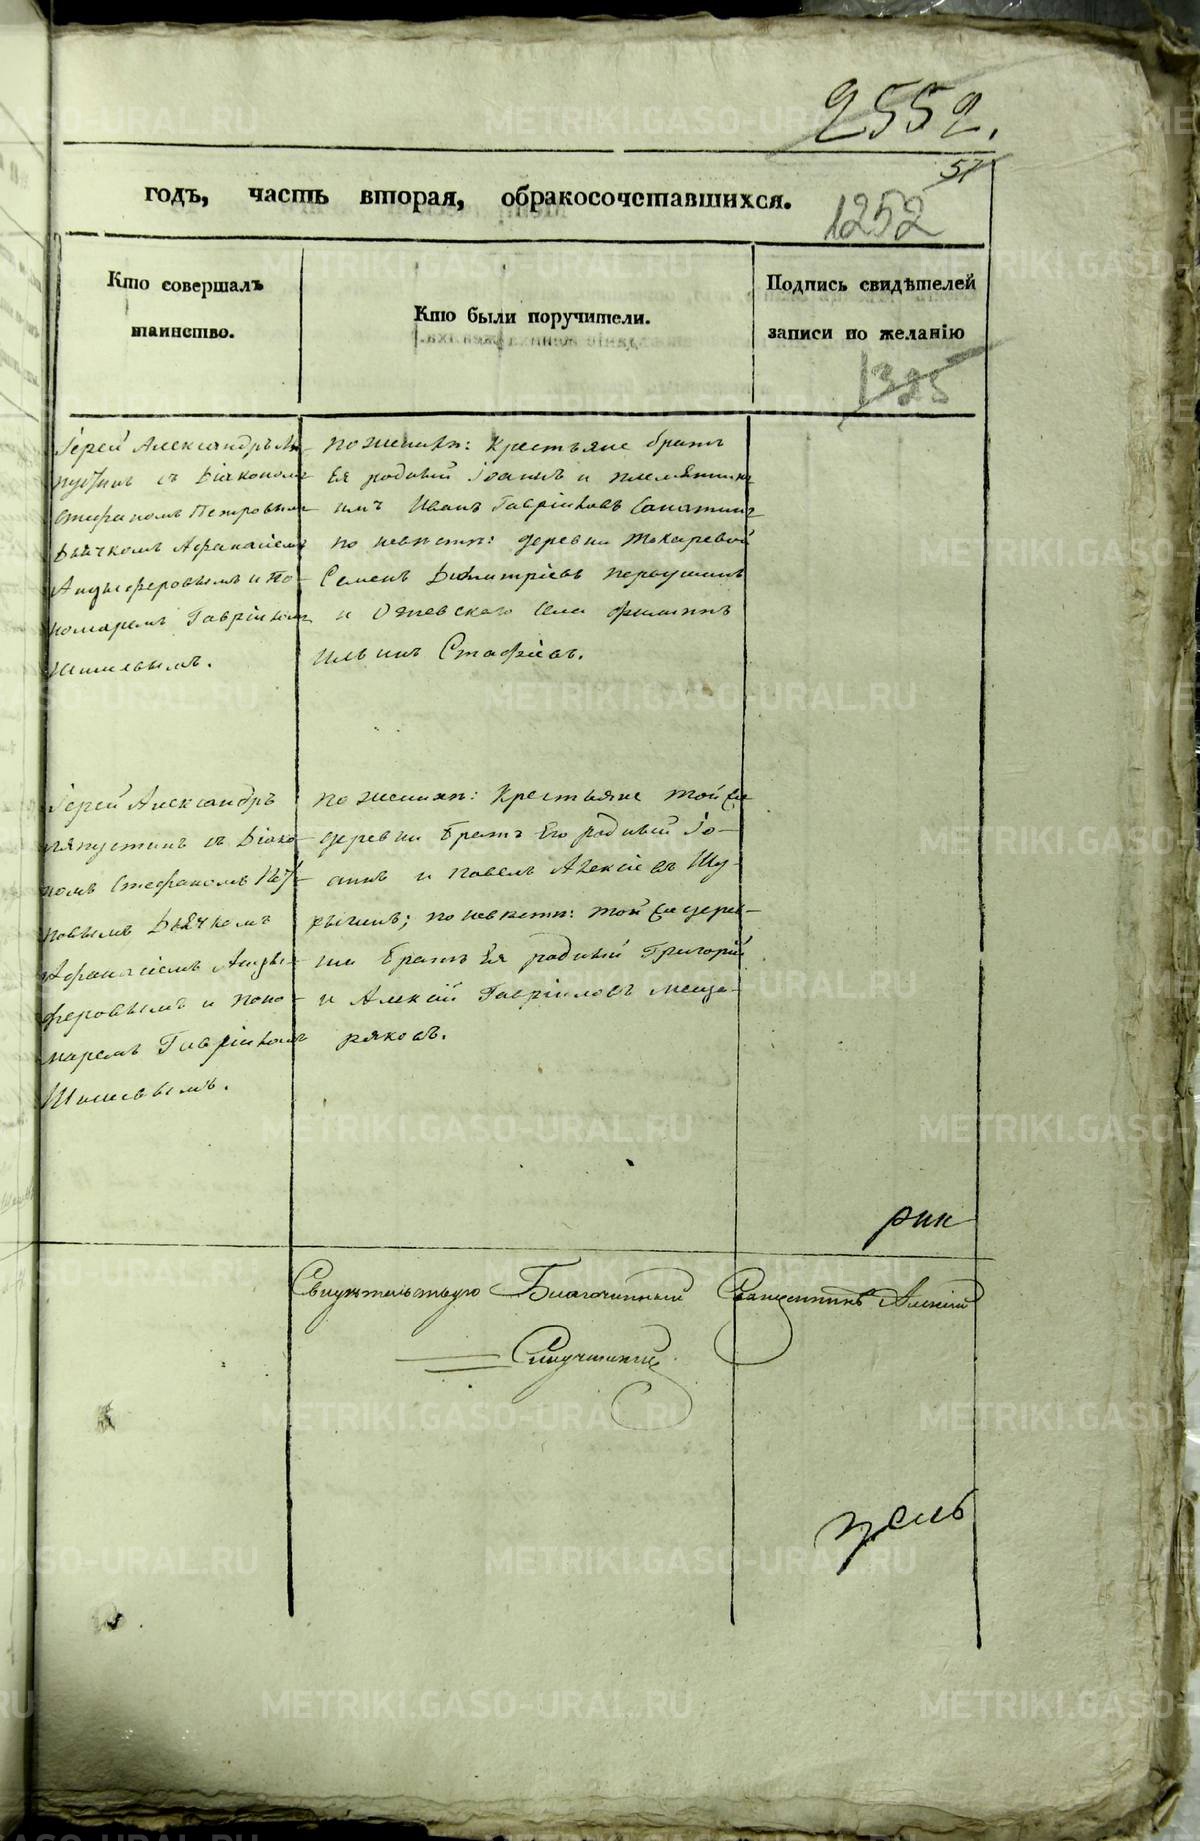 2552.
57
годъ, часть вторая, обракосочетавшихся.
1252
Кто совершалъ
таинство.
Кто были поручители.
Подпись свидѣтелей
записи по желанію
1325
Іерей Александръ Ля-
пустинъ съ Діакономъ
Стефаномъ Петровымъ
Дьячкомъ Афанасіемъ
Анцыферовымъ и По-
номаремъ Гавріиломъ
Шишевымъ.
по женихѣ: Крестьяне братъ
Ея родный Іоаннъ и племянникъ
имъ Иванъ Гавріиловъ
по невѣстѣ: деревни Токаревой
Семенъ Димитріевъ Первушинъ
и села Филиппъ
Ильинъ Стафіевъ.
Іерей Александръ
Ляпустинъ съ Діако-
номъ Стефаномъ Пет-
ровымъ Дьячкомъ
Афанасіемъ Анцы-
феровымъ и поно-
маремъ Гавріиломъ
Шишевымъ.
по женихѣ: Крестьяне той же
деревни братъ Его родный Іо-
аннъ и Павелъ Алексіевъ
по невѣстѣ: той же дерев-
ни братъ Ея родный Григорій
и Алексій Гавріиловъ Меще-
ряковъ.
рик
Свидѣтельствую Благочинный Священникъ Алексій